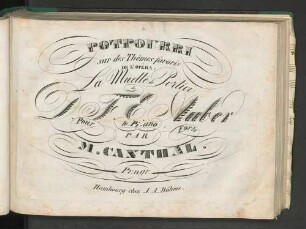 POTPOURRI
sur des Thèmes favoris
DE L'OPERA:
La Muette de Portici
de
D F E Auber
Pour le Piano Forte
PAR
M. CANTHAL.
Hambourg chez J. A. Böhme.